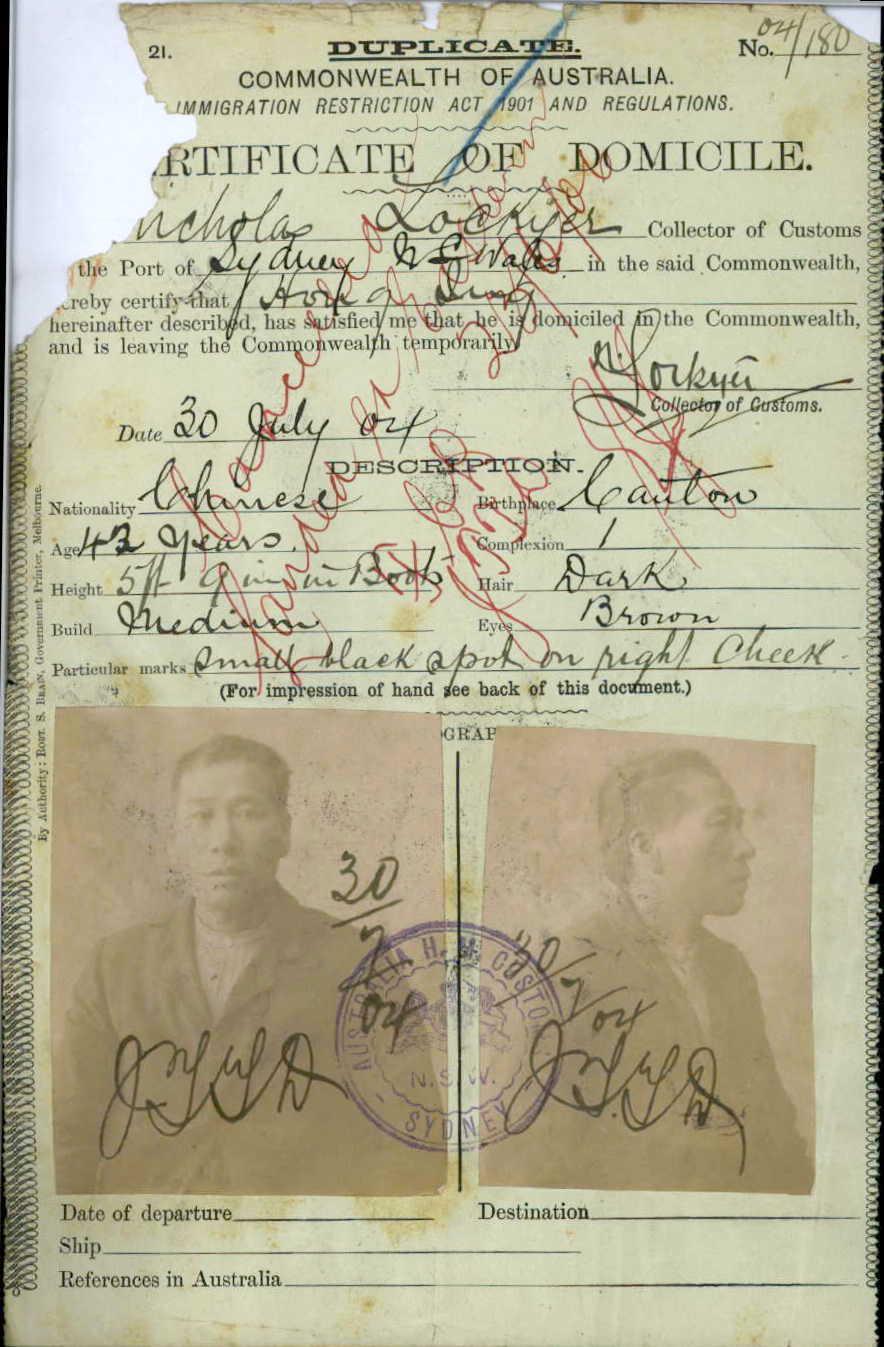 21.
DUPLICATE.
No. 04/180
COMMONWEALTH OF AUSTRALIA.
IMMIGRATION RESTRICTION ACT 1901 AND REGULATIONS.
RTIFICATE OF DOMICILE.
icholas Lockyer Collector of Customs
the Port of Sydney N S Wales in the said Commonwealth,
reby certify that Hong
hereinafter described, has satisfied me that he is domiciled in the Commonwealth,
and is leaving the Commonwealth temporarily
N. Lockyer
Collector of Customs.
Date 30 July 04
DESCRIPTION.
Nationality Chinese Birthplace Canton
Age 42 years. Complexion
Height 5ft 9 in in Boots Hair Dark
Build Medium Eyes Brown
Particular marks Small black spot on right Cheek.
(For impression of hand see back of this document.)
GRAP
30/7/04
30/7/04
AUSTRALIA H. M. CUSTOM
N.S.W.
SYDNEY
Date of departure Destination
Ship
References in Australia
By Authority: ROBT. S. BRAIN, Government Printer, Melbourne.